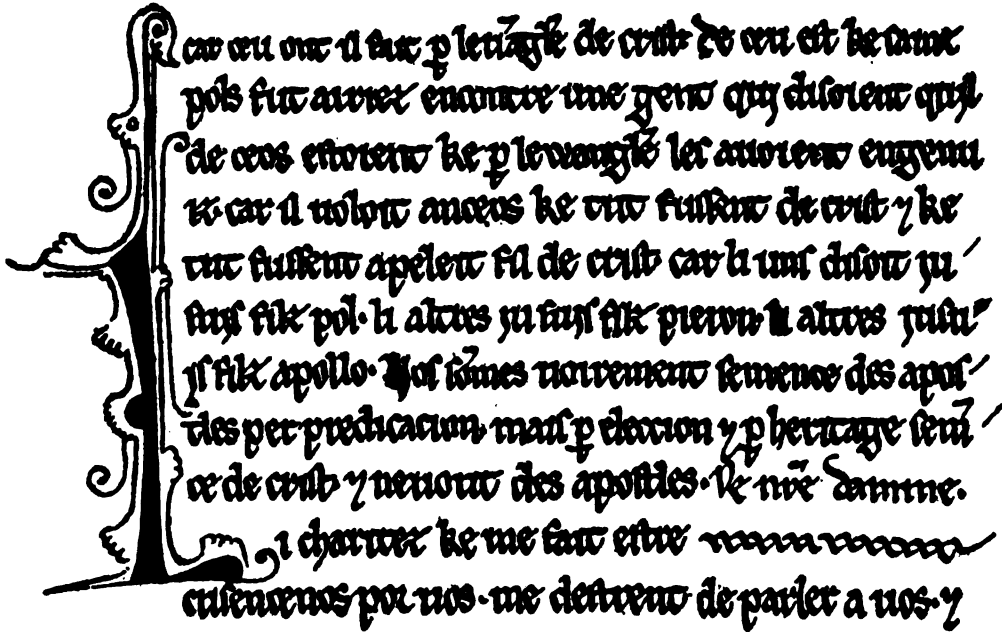 car ceu ont il fait ꝑ leuāgle de crist· De ceu est ke sainz
pols fut airiez encontre une gent qui disoient quil
de ceos estoient ke ꝑ lewangle les auoient engenu
iz· car il uoloit anceos ke tut fussent de crist ⁊ ke
tut fussent apeleit fil de crist· car li uns disoit iu
suis filz pol· li altres iu suis filz pieron· li altres iu sui
filz apollo· Nos somes uoirement semence des apos
tles per predicacion· mais ꝑ eleccion ⁊ ꝑ heritage semē
ce de crist· ⁊ neuout des apostles· De nr̄e damme·
i charitez ke me fait estre
cusencenos por uos· me destrent de parler a uos· ⁊